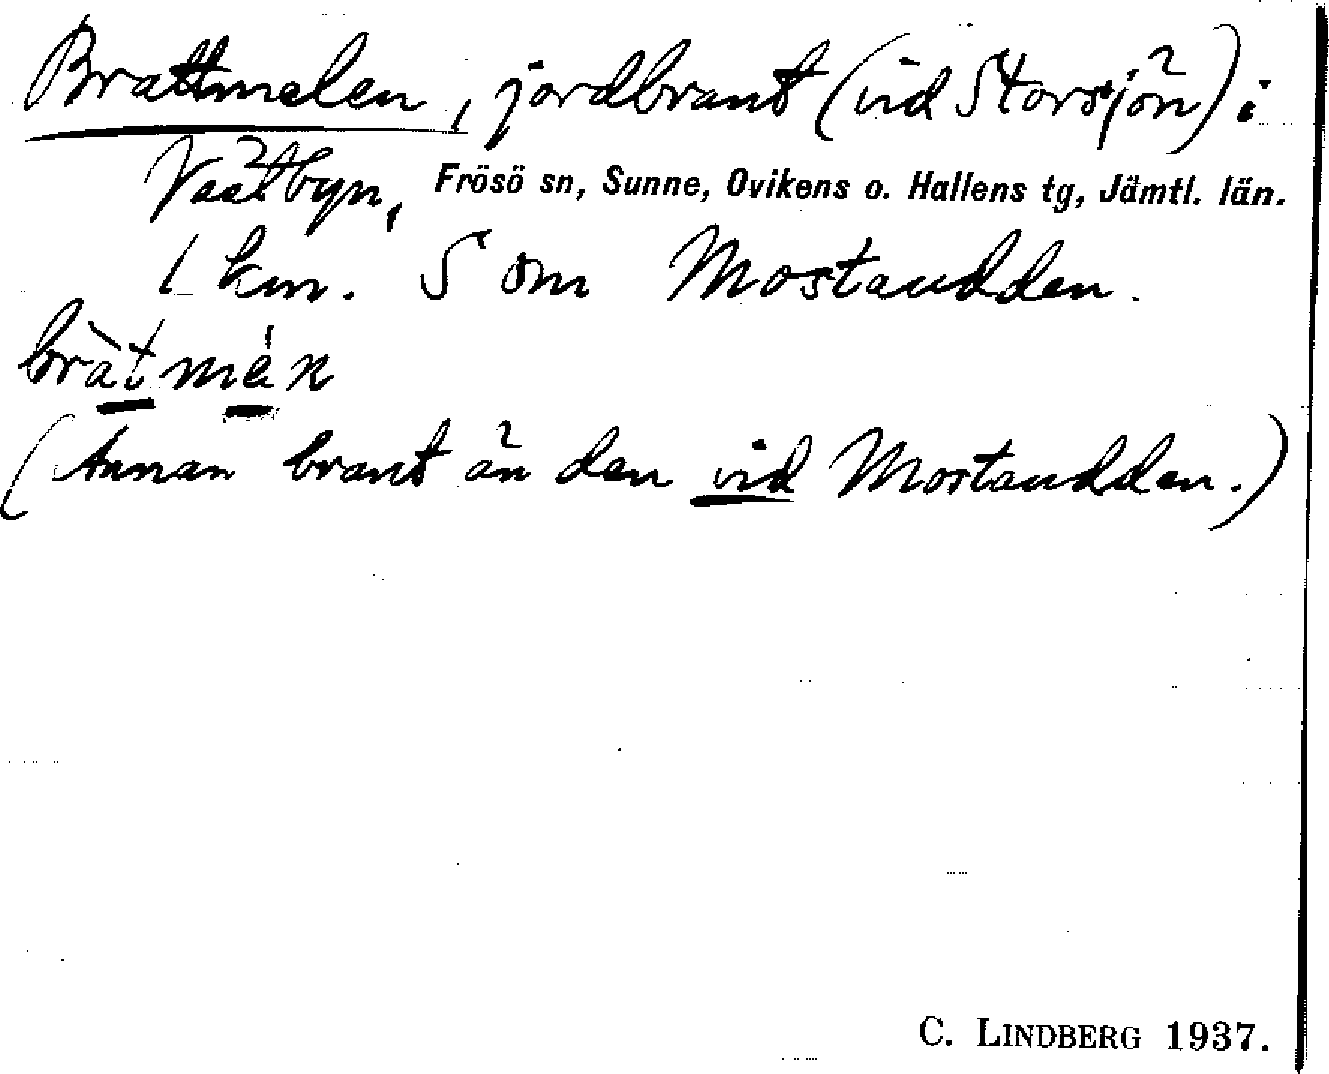 Brattmelen, jordbrant (vid Storsjön) i
Västbyn, Frösö sn, Sunne, Ovikens o. Hallens tg, Jämtl. län.
1 km. S om Mostaudden.
bràtmèn
(Annan brant än den vid Mostaudden.)
C. LINDBERG 1937.